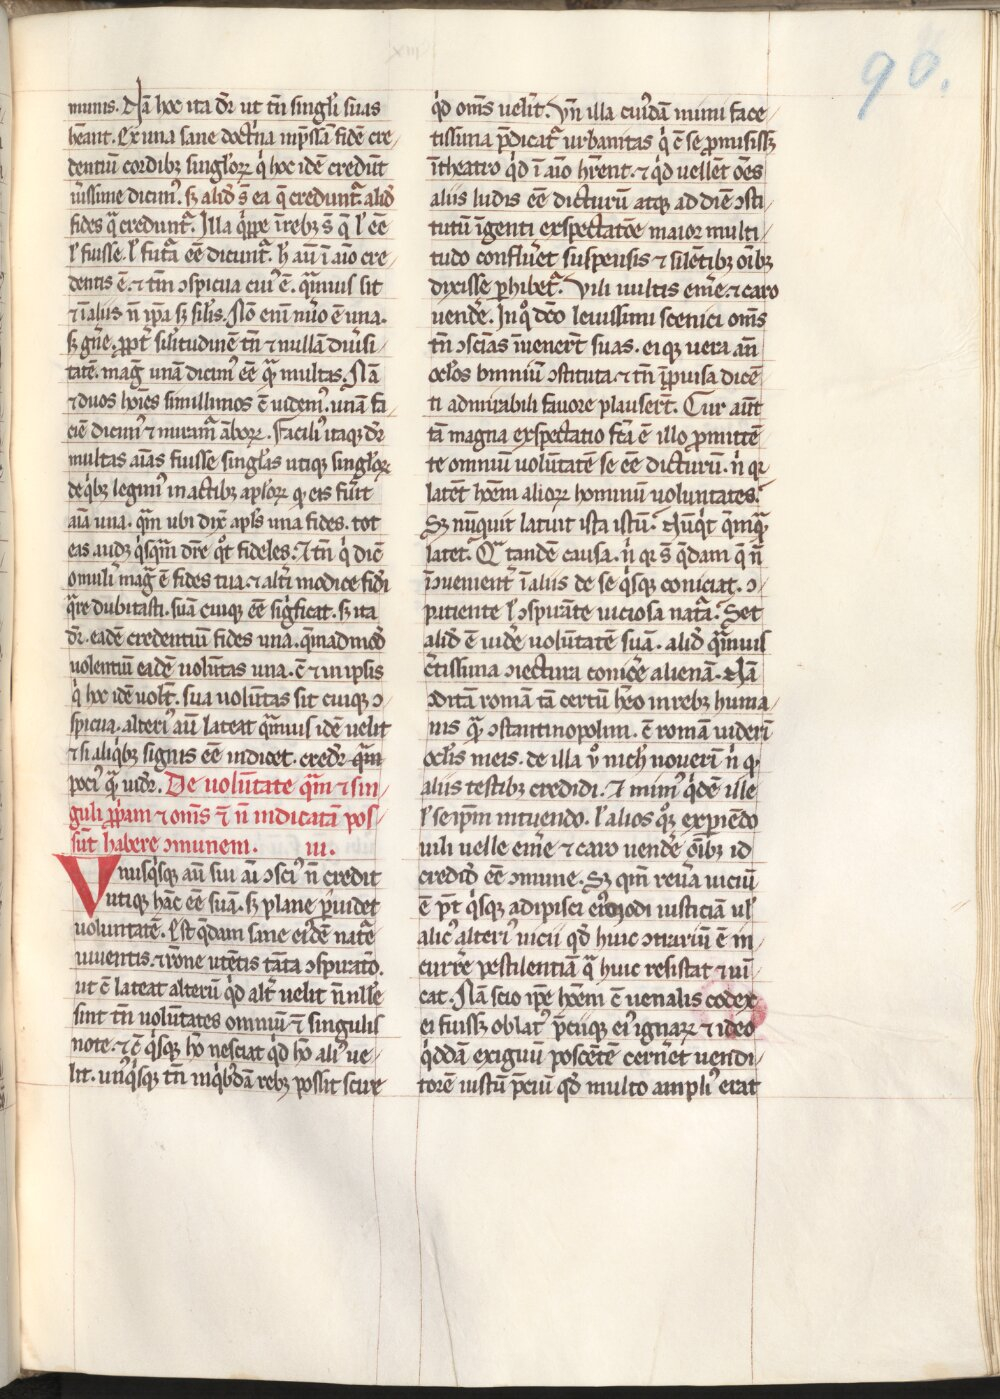 90.
munis. Nā hoc ita dr̄ ut tn̄ singl̄i suas
hēant. Ex una sane doct'na īp̄ssā fidē cre
dentiū cordibꝫ singl̄orꝝ q̇ hoc idē credūt
uissime dicim᷒. sꝫ aliđ s̄ ea q̄ creduntᷣ. aliđ
fides q̄ creduntᷣ. Illa q̇ppe ī rebꝫ s̄ q̄ l' eē
l' fuisse. l' futᷓ eē dicuntᷣ. h̄ aū ī aīo cre
dentis ē. ⁊ tm̄ ɔspicua cui᷒ ē. qᷓmuis sit
⁊ ī aliis n̄ ip̄a sꝫ sil'is. Nō enī nūo ē una.
sꝫ gn̄e. ꝓpt' sil'itudinē tn̄ ⁊ nullā diu'si
tatē. maḡ unā dicim᷒ eē qᷓ multas. Nā
⁊ duos hoīes simillimos c̄ uidem᷒. unā fa
ciē dicim᷒ ⁊ miramᷣ āborꝝ. Facili᷒ itaqꝫ dr̄
multas aīas fuisse singl̄as utiqꝫ singl̄orꝝ
de q̇bꝫ legim᷒ in actibꝫ ap̄lorꝝ qꝫ eis fūit
aīa una. qᷓm ubi dix̄ ap̄ls una fides. tot
eas audꝫ q̇sqᷓm dr̄e qo̊t fideles. ⁊ tn̄ q̇ dic̄
o muli' maḡ ē fides tua. ⁊ alt'i modice fidi
qᷓre dubitasti. suā cuiqꝫ eē sig̊ficat. sꝫ ita
dr̄. eadē credentiū fides una. q̄madmođ
uolentiū eadē uolūtas una. c̄ ⁊ in ipsis
q̇ hoc idē uolt̄. sua uolūtas sit cuiqꝫ ɔ
spicua. alteri᷒ aū lateat qᷓmuis idē uelit
⁊ si aliq̇bꝫ signis eē indicet. credr̄ qᷓm
poci᷒ qᷓ uidr̄. De uolūtate qᷓm ⁊ sin
guli ꝓp̄am ⁊ om̄s ⁊ n̄ indicatā pos
sūt habere ɔmunem. iii.
Unusq̇sqꝫ aū sui aī ɔsci᷒ n̄ credit
utiqꝫ hāc eē suā. sꝫ plane ꝑuidet
uoluntatē. Est q̄dam sane ei᷒dē natᷓe
uiuentis. ⁊ rōne utētis tāta ɔspiratō.
ut c̄ lateat alterū q̇d alt' uelit n̄ null'e
sint tn̄ uolūtates omniū ⁊ singulis
note. ⁊ c̄ q̇sqꝫ hō nesciat q̇d hō ali᷒ ue
lit. un᷒q̇sqꝫ tn̄ in q̇b᷒dā rebꝫ possit scire
q̇d om̄s uelīt. Vn̄ illa cui᷒dā mimi face
tissima p̄dicatᷣ urbanitas q̇ c̄ se ꝓmisissꝫ
ī theatro q̇d ī aīo hr̄ent. ⁊ q̇d uellēt oēs
aliis ludis eē dicturū atqꝫ ad diē ɔsti
tutū īgenti exspectatōe maior multi
tudo conflu'et suspensis ⁊ silētibꝫ oībꝫ
dixisse ꝑhibetᷣ. Vili uultis em'e. ⁊ caro
uend'e. In qo̊ dc̄o leuissimi scenici om̄s
tn̄ ɔsciās īuener̄t suas. eiqꝫ uera an̄
oclōs omniū ɔstituta. ⁊ tn̄ īꝓuisa dicē
ti admirabili fauore plauser̄t. Cur aūt
tā magna exspectatio fc̄a ē illo ꝓmittē
te omniū uolūtatē se eē dicturū. n̄ qꝫ
latēt hoēm aliorꝝ hominū uoluntates.
Sꝫ nūquit latuit ista istū. Nūq̇t q̄mqᷓ
latet. Qᷓ tandē causa. n̄ qꝫ s̄ q̄dam q̄ n̄
īɔuenient' ī aliis de se q̇sqꝫ coniciat. ɔ
patiente l' ɔspirāte uiciosa natᷓ. Set
aliđ ē uid'e uolūtatē suā. aliđ qᷓmuis
c'tissima ɔiectura conic'e alienā. Nā
ɔditā romā tā certū h̄eo in rebꝫ huma
nis qᷓ ɔstantinopolim. c̄ romā uiderī
oclīs meis. de illa ū nich̄ nouerī n̄ qꝫ
aliis testibꝫ credidi. Et mim᷒ q̇dē ille
l' se ip̄m intuendo. l' alios qo̊qꝫ expiēdo
uili uelle em'e ⁊ caro uend'e oībꝫ id
credid' eē ɔmune. Sꝫ qm̄ reu'a uiciū
ē p̄t q̇sqꝫ adipisci ei᷒modi iusticiā ul'
alic᷒ alteri᷒ uicii qd̄ huic ɔtrariū ē in
curr'e pestilentiā qᷓ huic resistat ⁊ uī
cat. Nā scio ip̄e hoēm c̄ uenalis codex
ei fuissꝫ oblat᷒ p̄ciiqꝫ ei᷒ ignarꝝ ⁊ ideo
q̇ddā exiguū poscētē cern'et uendi
torē iustū p̄ciū qd̄ multo ampli᷒ erat